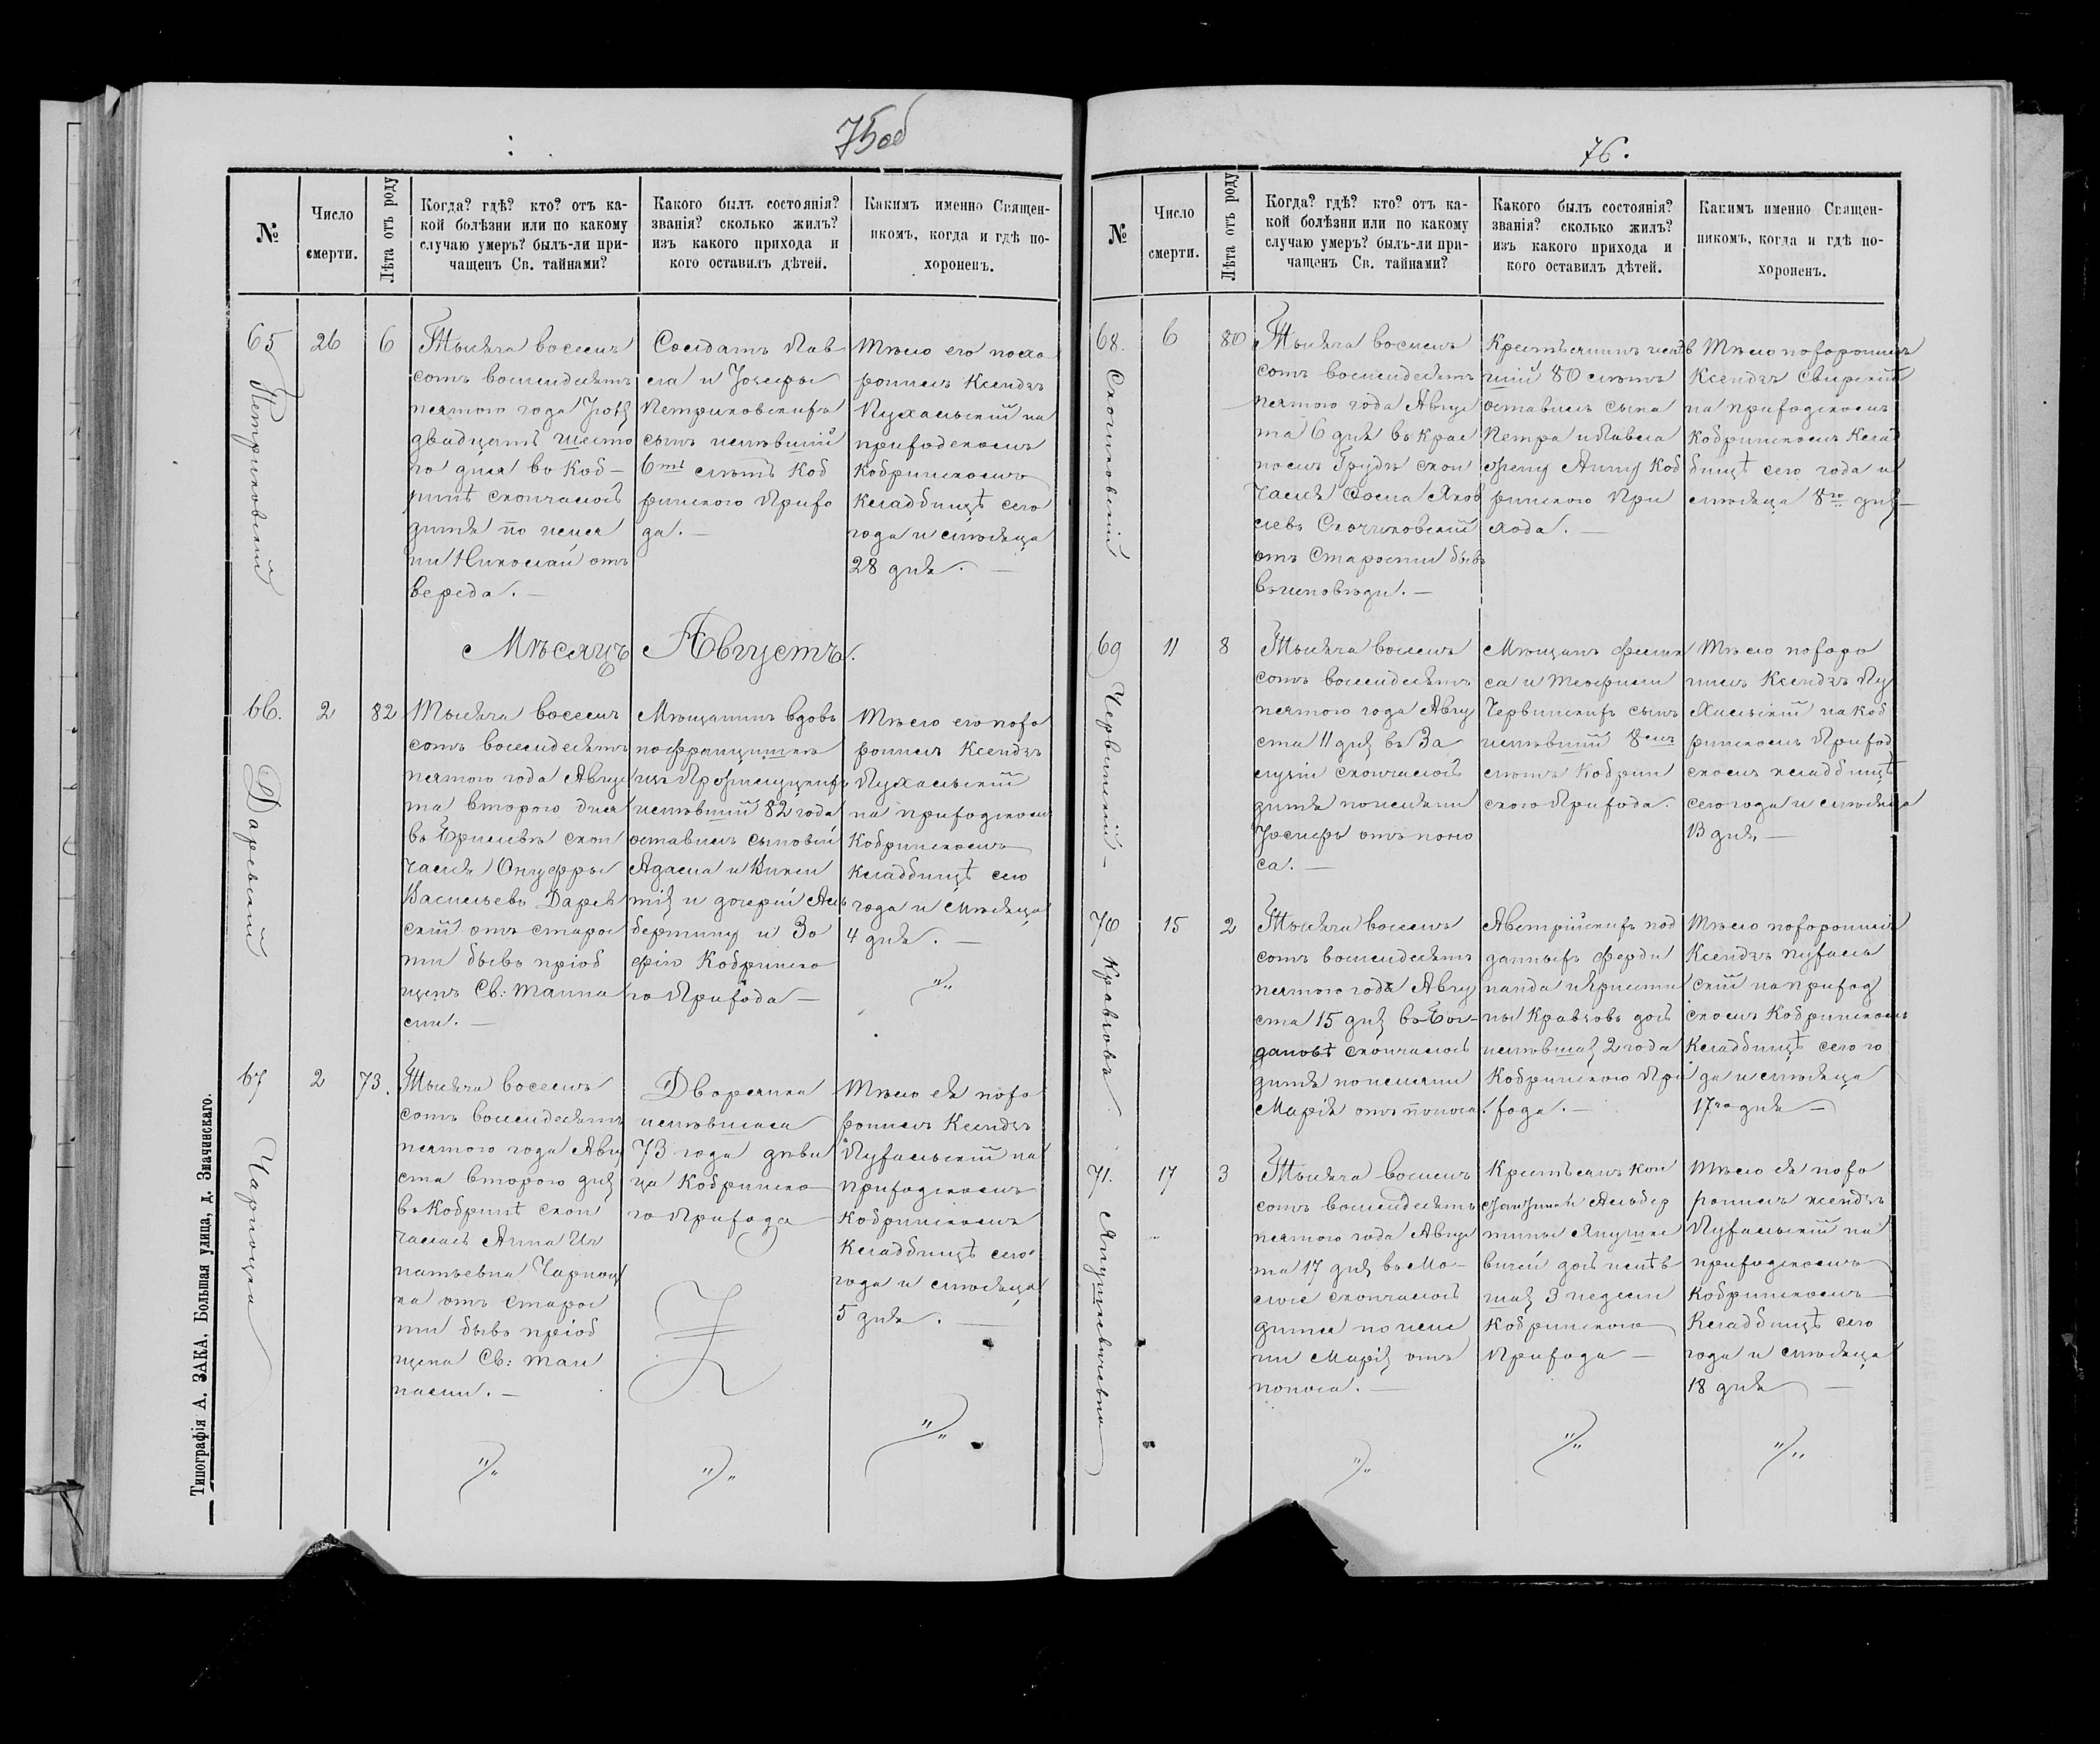 75об
№
Число
смерти.
Лѣта отъ роду
Когда? гдѣ? кто? отъ ка-
кой болѣзни или по какому
случаю умеръ? былъ-ли при-
чащенъ Св. тайнами?
Какого былъ состоянія?
званія? сколько жилъ?
изъ какого прихода и
кого оставилъ дѣтей.
Какимъ именно Священ-
никомъ, когда и гдѣ по-
хороненъ.
65
Петриковскій
26
6
Тысяча восемь
сотъ восемдесятъ
пятого года Іюля
двадцать шесто
го дня въ Коб-
ринѣ скончалось
дитя по имея
ни Николай отъ
вереда. —
Солдатъ Пав
ла и Іозефы
Петриковскихъ
сынъ имѣвшій
6ть лѣтъ Коб
ринского Прихо
да. —
Тѣло его похо
ронилъ Ксендзъ
Пухальскій на
приходскомъ
Кобринскомъ
Кладбищѣ сего
года и мѣсяца
28 дня. —
Мѣсяцъ Августъ.
66.
Даревскій
2
82
Тысяча восемь
сотъ восемдесятъ
пятого года Авгус
та второго дня
въ скон
чался Онуфры
Васильевъ Дарев
скій отъ старос
ти бывъ пріоб
щенъ Св: тайна
ми. —
Мѣщанинъ вдовъ
по Францишкѣ
изъ
имѣвшій 82 года
оставилъ сыновей
Адама и Викен
тія и дочерей Аль
бертину и Зо
фію Кобринско
го Прихода —
Тѣло его похо
ронилъ Ксендзъ
Пухальскій
на приходскомъ
Кобринскомъ
Кладбищѣ сего
года и мѣсяца
4 дня. —
67
Чарноцка
2
73.
Тысяча восемь
сотъ восемдесятъ
пятого года Авгу
ста второго дня
въ Кобринѣ скон
чалась Анна Иг
натьевна Чарноц
ка отъ старос
ти бывъ пріоб
щена Св: тай
нами. —
Дворянка
имѣвшая
73 года дѣви
ца Кобринско
го Прихода
Тѣло ея похо
ронилъ Ксендзъ
Пухальскій на
приходскомъ
Кобринскомъ
Кладбищѣ сего
года и мѣсяца
5 дня. —
Типографія А. ЗАКА, Большая улица, д. Значинскаго.
76.
№
Число
смерти.
Лѣта отъ роду
Когда? гдѣ? кто? отъ ка-
кой болѣзни или по какому
случаю умеръ? былъ-ли при-
чащенъ Св. тайнами?
Какого былъ состоянія?
званія? сколько жилъ?
изъ какого прихода и
кого оставилъ дѣтей.
Какимъ именно Священ-
никомъ, когда и гдѣ по-
хороненъ.
68.
Скочиковскій
6
80
Тысяча восемь
сотъ восемдесятъ
пятого года Авгус
та 6 дня въ Крас
номъ Грудѣ скон
чался Яков
левъ Скочиковскій
отъ Старости бывъ
въ исповѣди. —
Крестьянинъ имѣв
шій 80 лѣтъ
оставилъ сына
Петра и Павла
жену Анну Коб
ринского При
хода. —
Тѣло похоронилъ
Ксендзъ Свирскій
на приходскомъ
Кобринскомъ Клад
бищѣ сего года и
мѣсяца 8го дня —
69
Червинскій —
11
8
Тысяча восемь
сотъ восемдесятъ
пятого года Авгу
ста 11 дня въ За
лузіи скончалось
дитя по имени
Іосифъ отъ поно
са. —
Мѣщанъ Фелик
са и Теофили
Червинскихъ сынъ
имѣвшій 8мь
лѣтъ Кобрин
ского Прихода.
Тѣло похоро
нилъ Ксендзъ Пу
хальскій на Коб
ринскомъ Приход
скомъ кладбищѣ
сего года и мѣсяца
13 дня —
70
Кравзовъ
15
2
Тысяча восемь
сотъ восемдесятъ
пятого года Авгу
ста 15 дня въ Бог-
дановѣ скончалось
дитя по имени
Марія отъ поноса.
Австрійскихъ под
данныхъ Ферди
нанда и Кристи
ны Кравзовъ дочь
имѣвшая 2 года
Кобринского При
хода. —
Тѣло похоронилъ
Ксендзъ Пухаль
скій на приход
скомъ Кобринскомъ
Кладбищѣ сего го
да и мѣсяца
17го дня —
71.
Янушкевичевна
17
3
Тысяча восемь
сотъ восемдесятъ
пятого года Авгус
та 17 дня въ
скончалось
дитя по име
ни Марія отъ
поноса. —
Крестьянъ Кон
стантина и Альбер
тины Янушке
вичей дочь имѣв
шая 3 недели
Кобринского
Прихода —
Тѣло ея похо
ронилъ ксендзъ
Пухальскій на
приходскомъ
Кобринскомъ
Кладбищѣ сего
года и мѣсяца
18 дня —